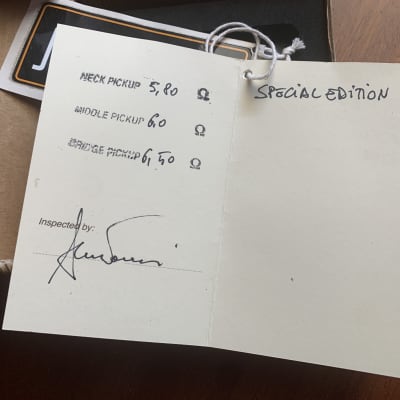 NECK PICKUP 5,80 Ω
MIDDLE PICKUP 6,0 Ω
BRIDGE PICKUP 6,50 Ω
Inspected by:
SPECIAL EDITION